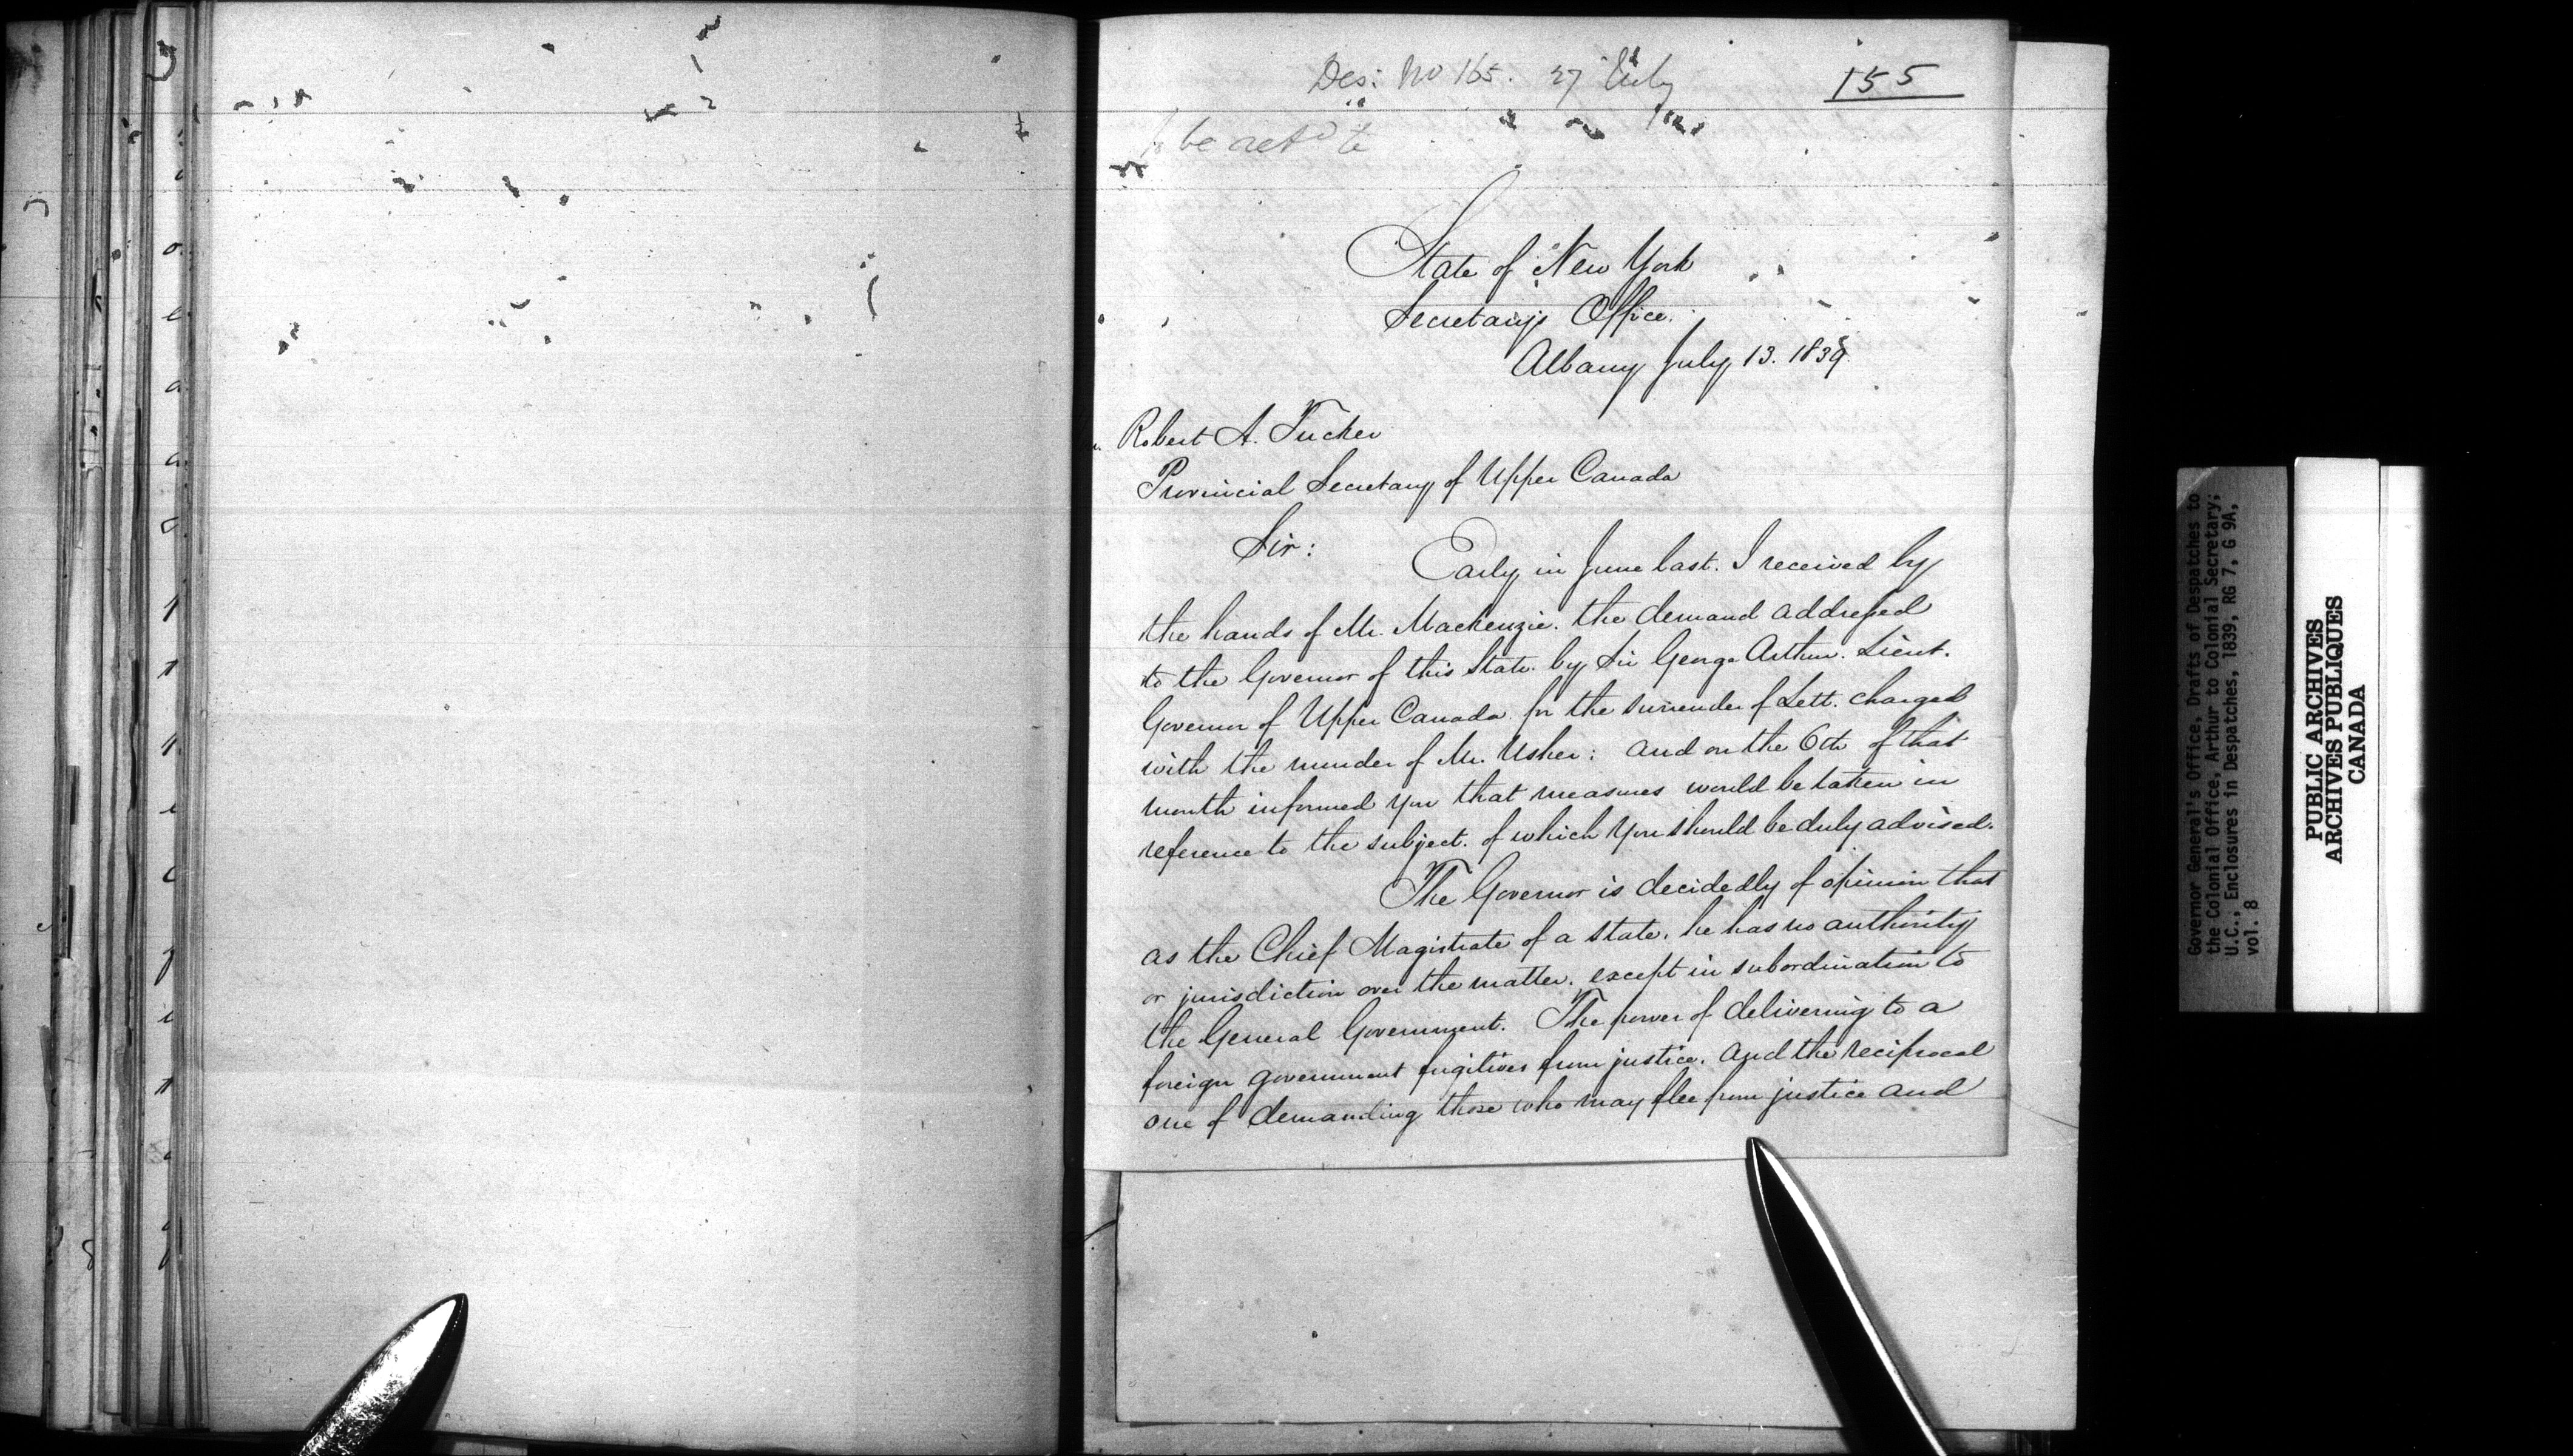 Des: No 165. 27 July
155
be ack^d to
State of New York
Secretary's Office.
Albany July 13. 1839.
Robert A. Tucker
Provincial Secretary of Upper Canada
Sir: Early in June last. I received by
the hands of Mr. Mackenzie. the demand addressed
to the Governor of this State. by Sir George Arthur. Lieut.
Governor of Upper Canada for the surrender of Lett. charged
with the murder of Mr. Usher: and on the 6th of that
month informed you that measures would be taken in
reference to the subject. of which you should be duly advised.
The Governor is decidedly of opinion that
as the Chief Magistrate of a state. he has no authority
or jurisdiction over the matter. except in subordination to
the General Government. The power of delivering to a
foreign government fugitives from justice. and the reciprocal
one of demanding those who may flee from justice and
Governor General's Office, Drafts of Despatches to
the Colonial Office, Arthur to Colonial Secretary;
U.C., Enclosures in Despatches, 1839, RG 7, G 9A,
vol. 8
PUBLIC ARCHIVES
ARCHIVES PUBLIQUES
CANADA